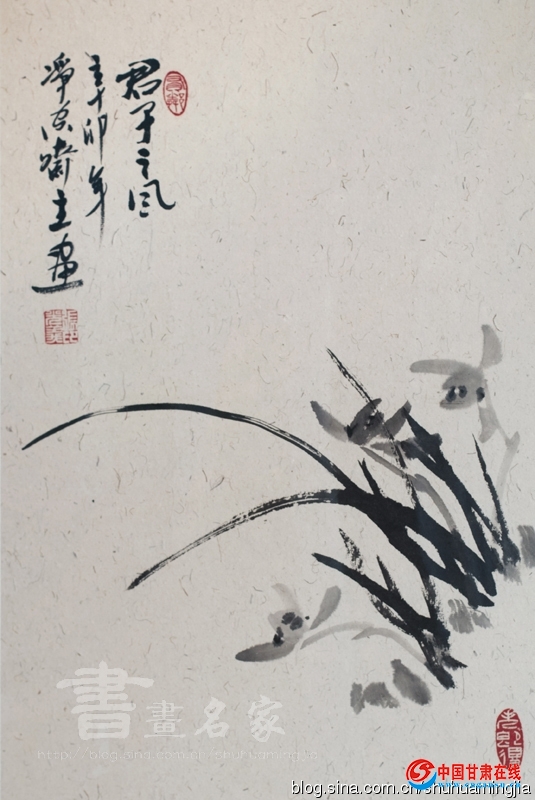 君子之风
辛卯年
齋主畫
書畫名家
http://blog.sina.com.cn/shuhuamingjia
中国甘肃在线
blog.sina.com.cn/shuhuamingjia